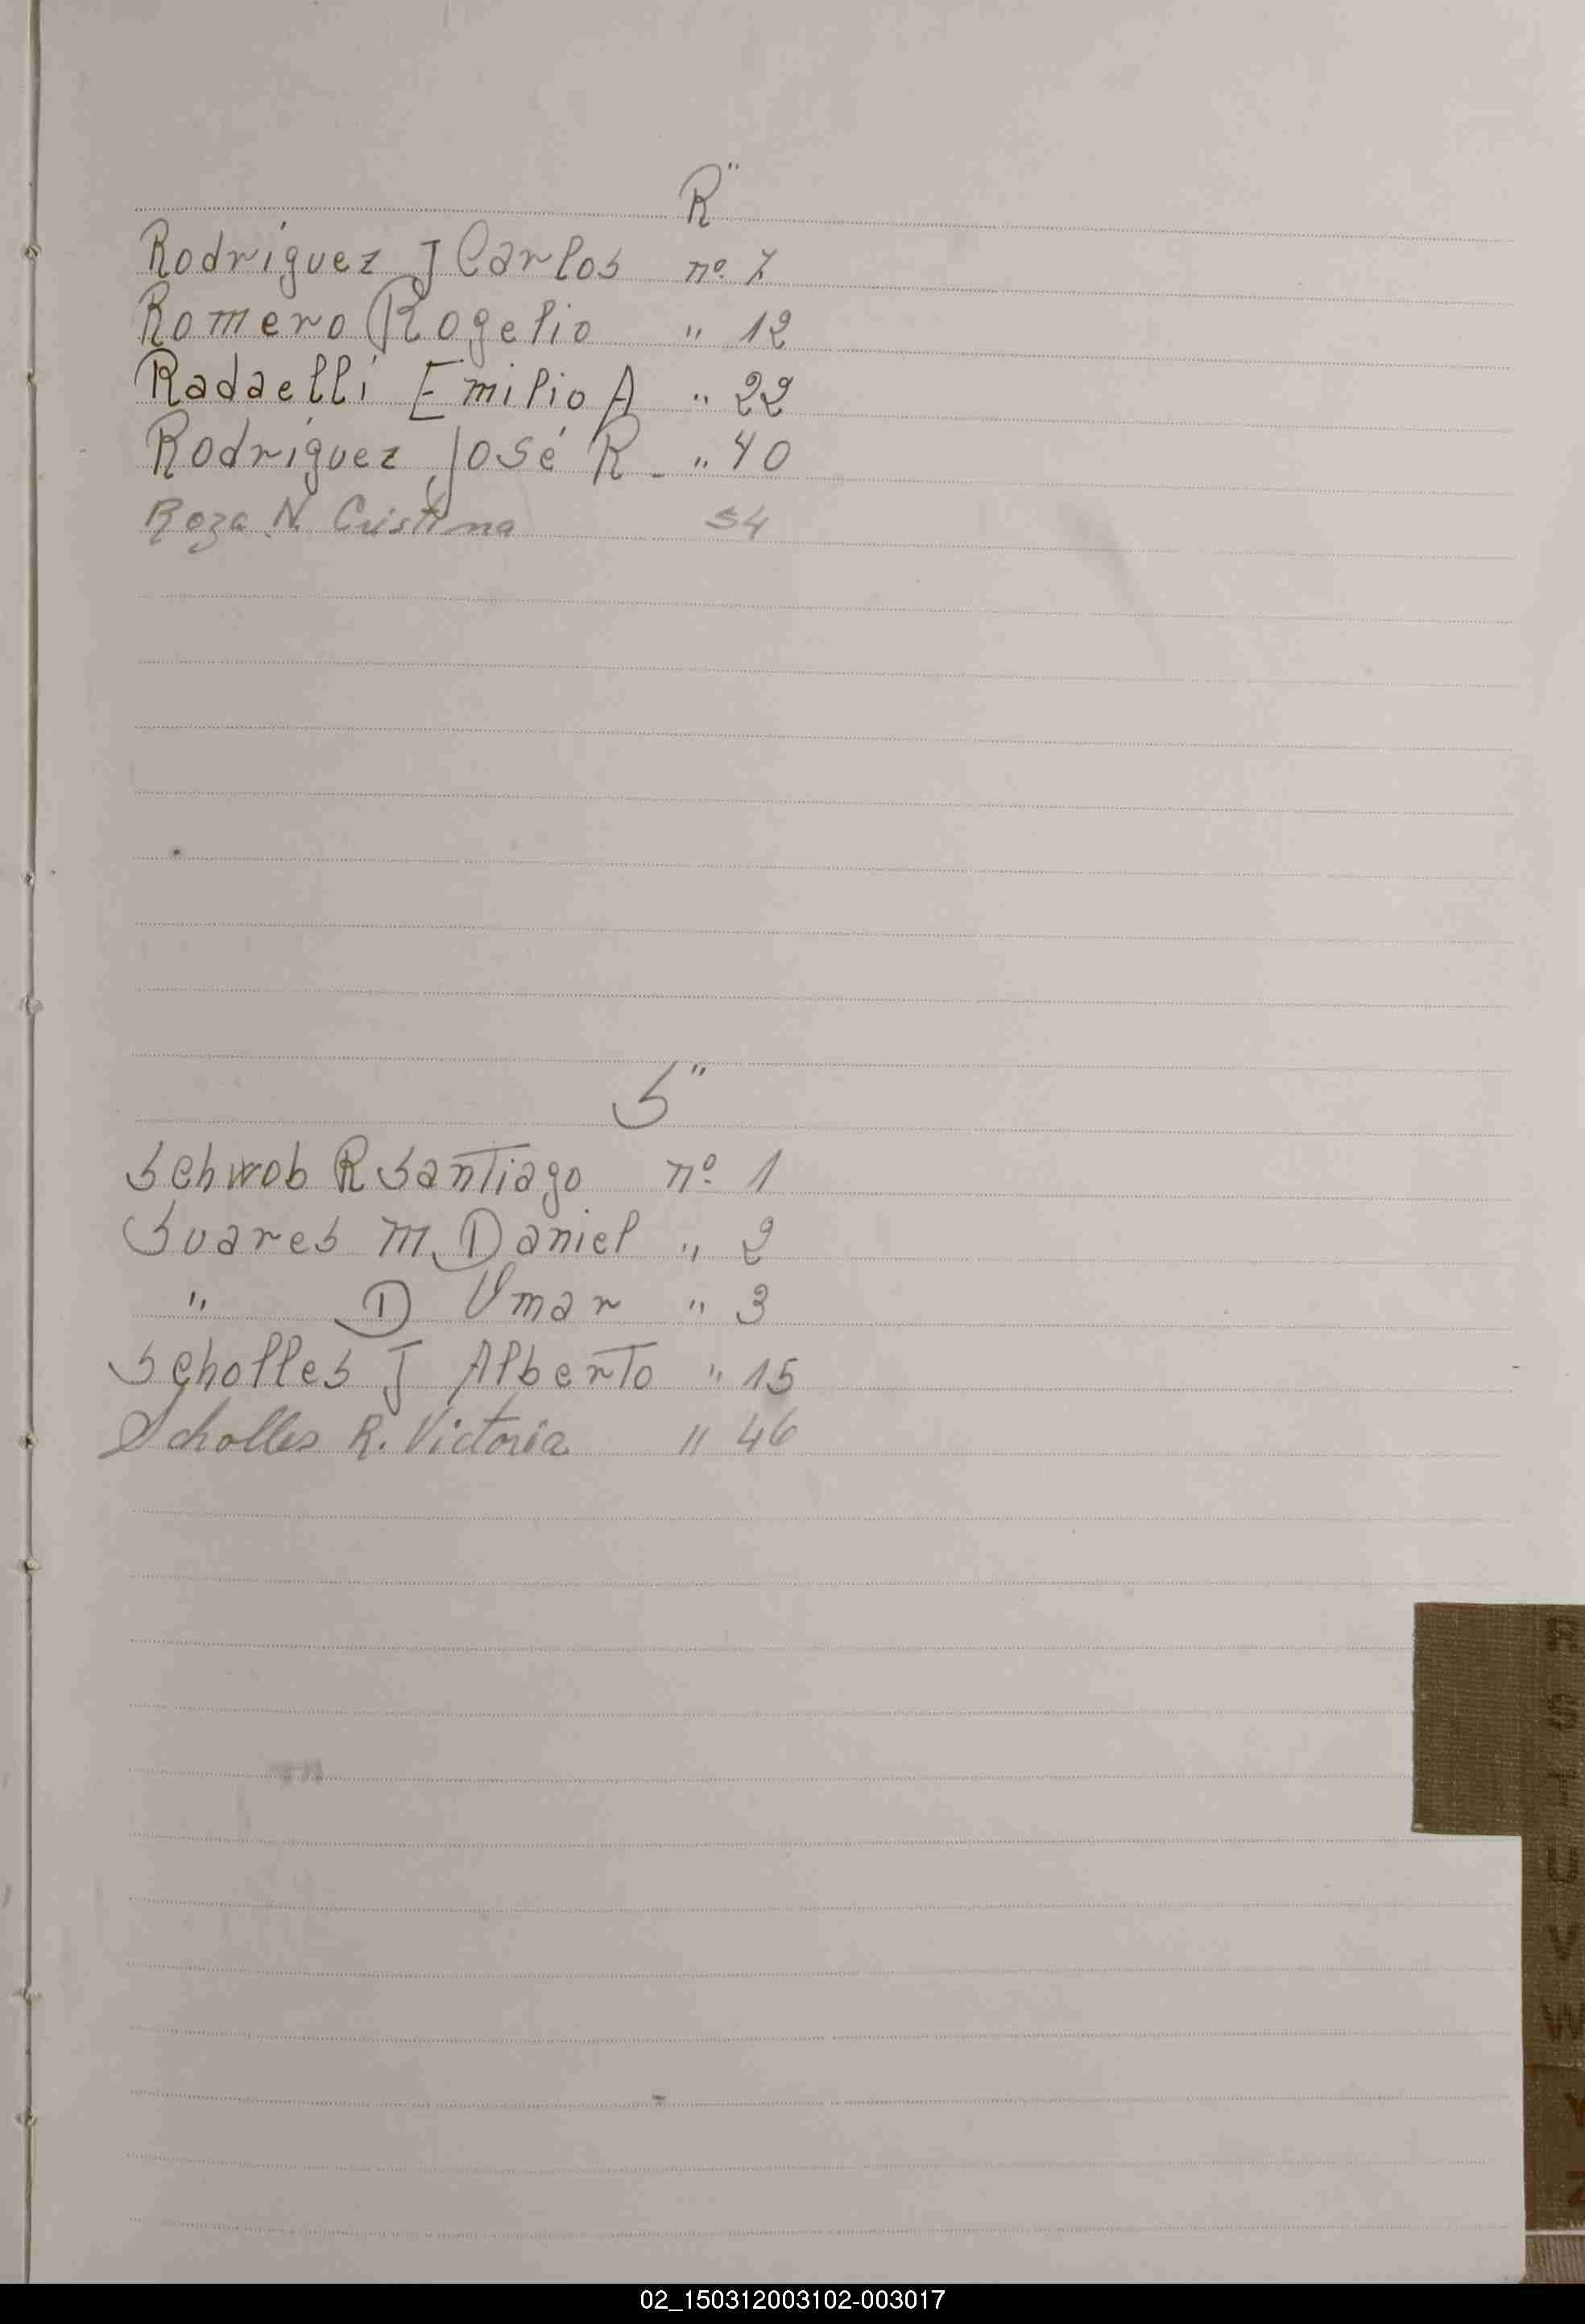 R"
Rodriguez J Carlos nº 7
Romero Rogelio " 12
Radaelli Emilio A " 22
Rodriguez José R - " 40
Roza N. Cristina 54
S"
Schwob R Santiago nº 1
Suares M. Daniel " 2
" D Omar " 3
Scholles J Alberto " 15
Scholles R. Victoria " 46
S
T
U
V
W
Y
Z
02_150312003102-003017